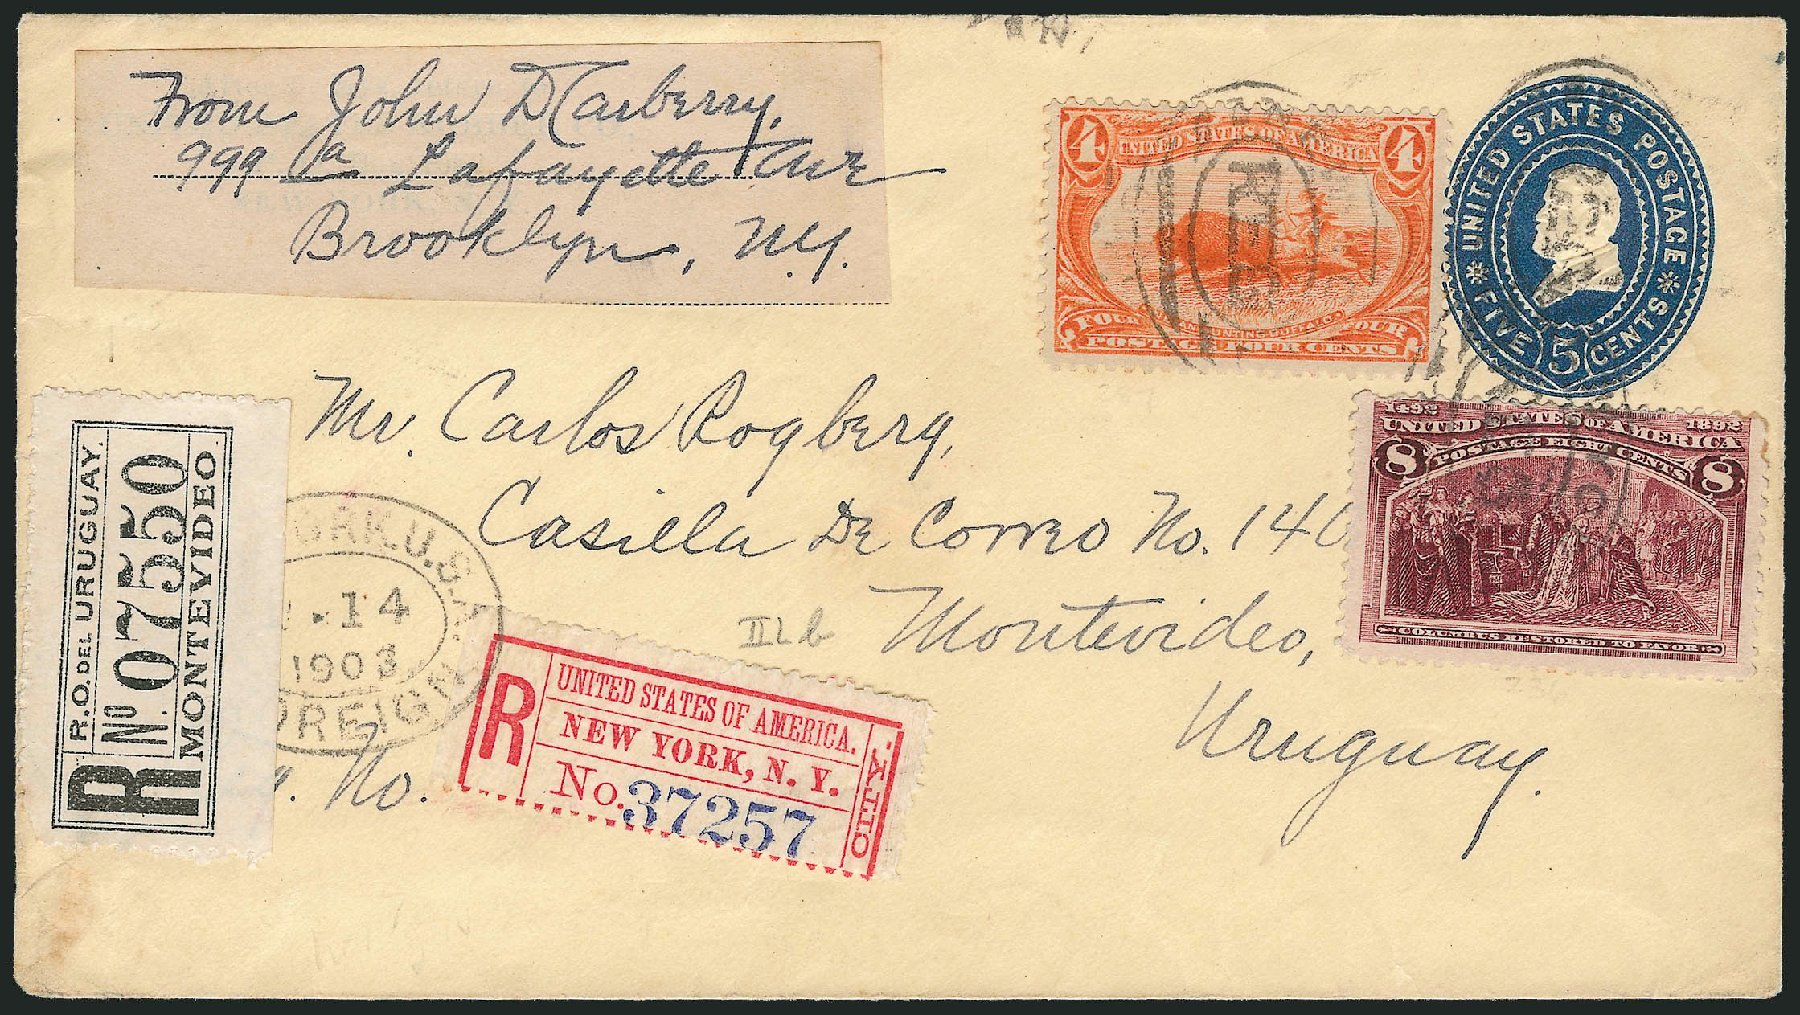 From John D Carberry,
999 a Lafayette Ave
Brooklyn, N.Y.
4 UNITED STATES OF AMERICA 4
FOUR FOUR
POSTAGE FOUR CENTS
UNITED STATES POSTAGE
FIVE 5 CENTS
1492 1892
UNITED STATES OF AMERICA
POSTAGE EIGHT CENTS
8 8
COLUMBUS RESTORED TO FAVOR
Mr. Carlos Rogberg,
Casilla De Correo No. 140
Montevideo,
Uruguay.
IILb
R
R.O. DEL URUGUAY.
No. 07550
MONTEVIDEO.
U.S.A.
.14
1903
FOREIGN
No.
R
UNITED STATES OF AMERICA.
NEW YORK, N. Y.
No. 37257